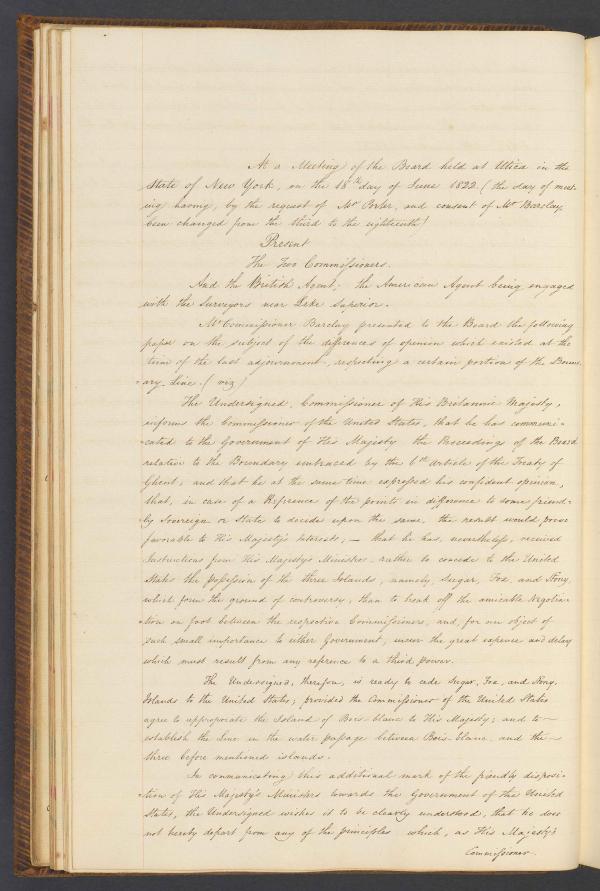 At a Meeting of the Board held at Utica in the
State of New York, on the 18th day of June 1822 (the day of meet-
ing having, by the request of Mr Porter, and consent of Mr Barclay,
been changed from the third to the eighteenth)
Present
The Two Commissioners.
And the British Agent; the American Agent being engaged
with the Surveyors near Lake Superior.
Mr Commissioner Barclay presented to the Board the following
paper on the subject of the differences of opinion which existed at the
time of the last adjournment, respecting a certain portion of the Bound-
ary Line. (viz)
The Undersigned, Commissioner of His Britannic Majesty,
informs the Commissioner of the United States, that he has communi-
cated to the Government of His Majesty the Proceedings of the Board
relative to the Boundary embraced by the 6th article of the Treaty of
Ghent; and that he at the same time expressed his confident opinion,
that, in case of a Reference of the points in difference to some friend-
ly Sovereign or State to decide upon the same, the result would prove
favorable to His Majesty's Interests; — that he has, nevertheless, received
Instructions from His Majestys Ministers rather to concede to the United
States the possession of the three Islands, namely, Sugar, Fox, and Stony,
which form the ground of controversy, than to break off the amicable Negotia-
tion on foot between the respective Commissioners, and, for an object of
such small importance to either Government, incur the great expence and delay
which must result from any reference to a third power.
The Undersigned, therefore, is ready to cede Sugar, Fox, and Stony
Islands to the United States; provided the Commissioner of the United States
agree to appropriate the Island of Bois-blanc to His Majesty; and to —
establish the Line in the water passage between Bois-blanc, and the —
three before mentioned islands.
In communicating this additional mark of the friendly disposi-
tion of His Majesty's Ministers towards the Government of the United
States, the Undersigned wishes it to be clearly understood, that he does
not hereby depart from any of the principles which, as His Majesty's
Commissioner.